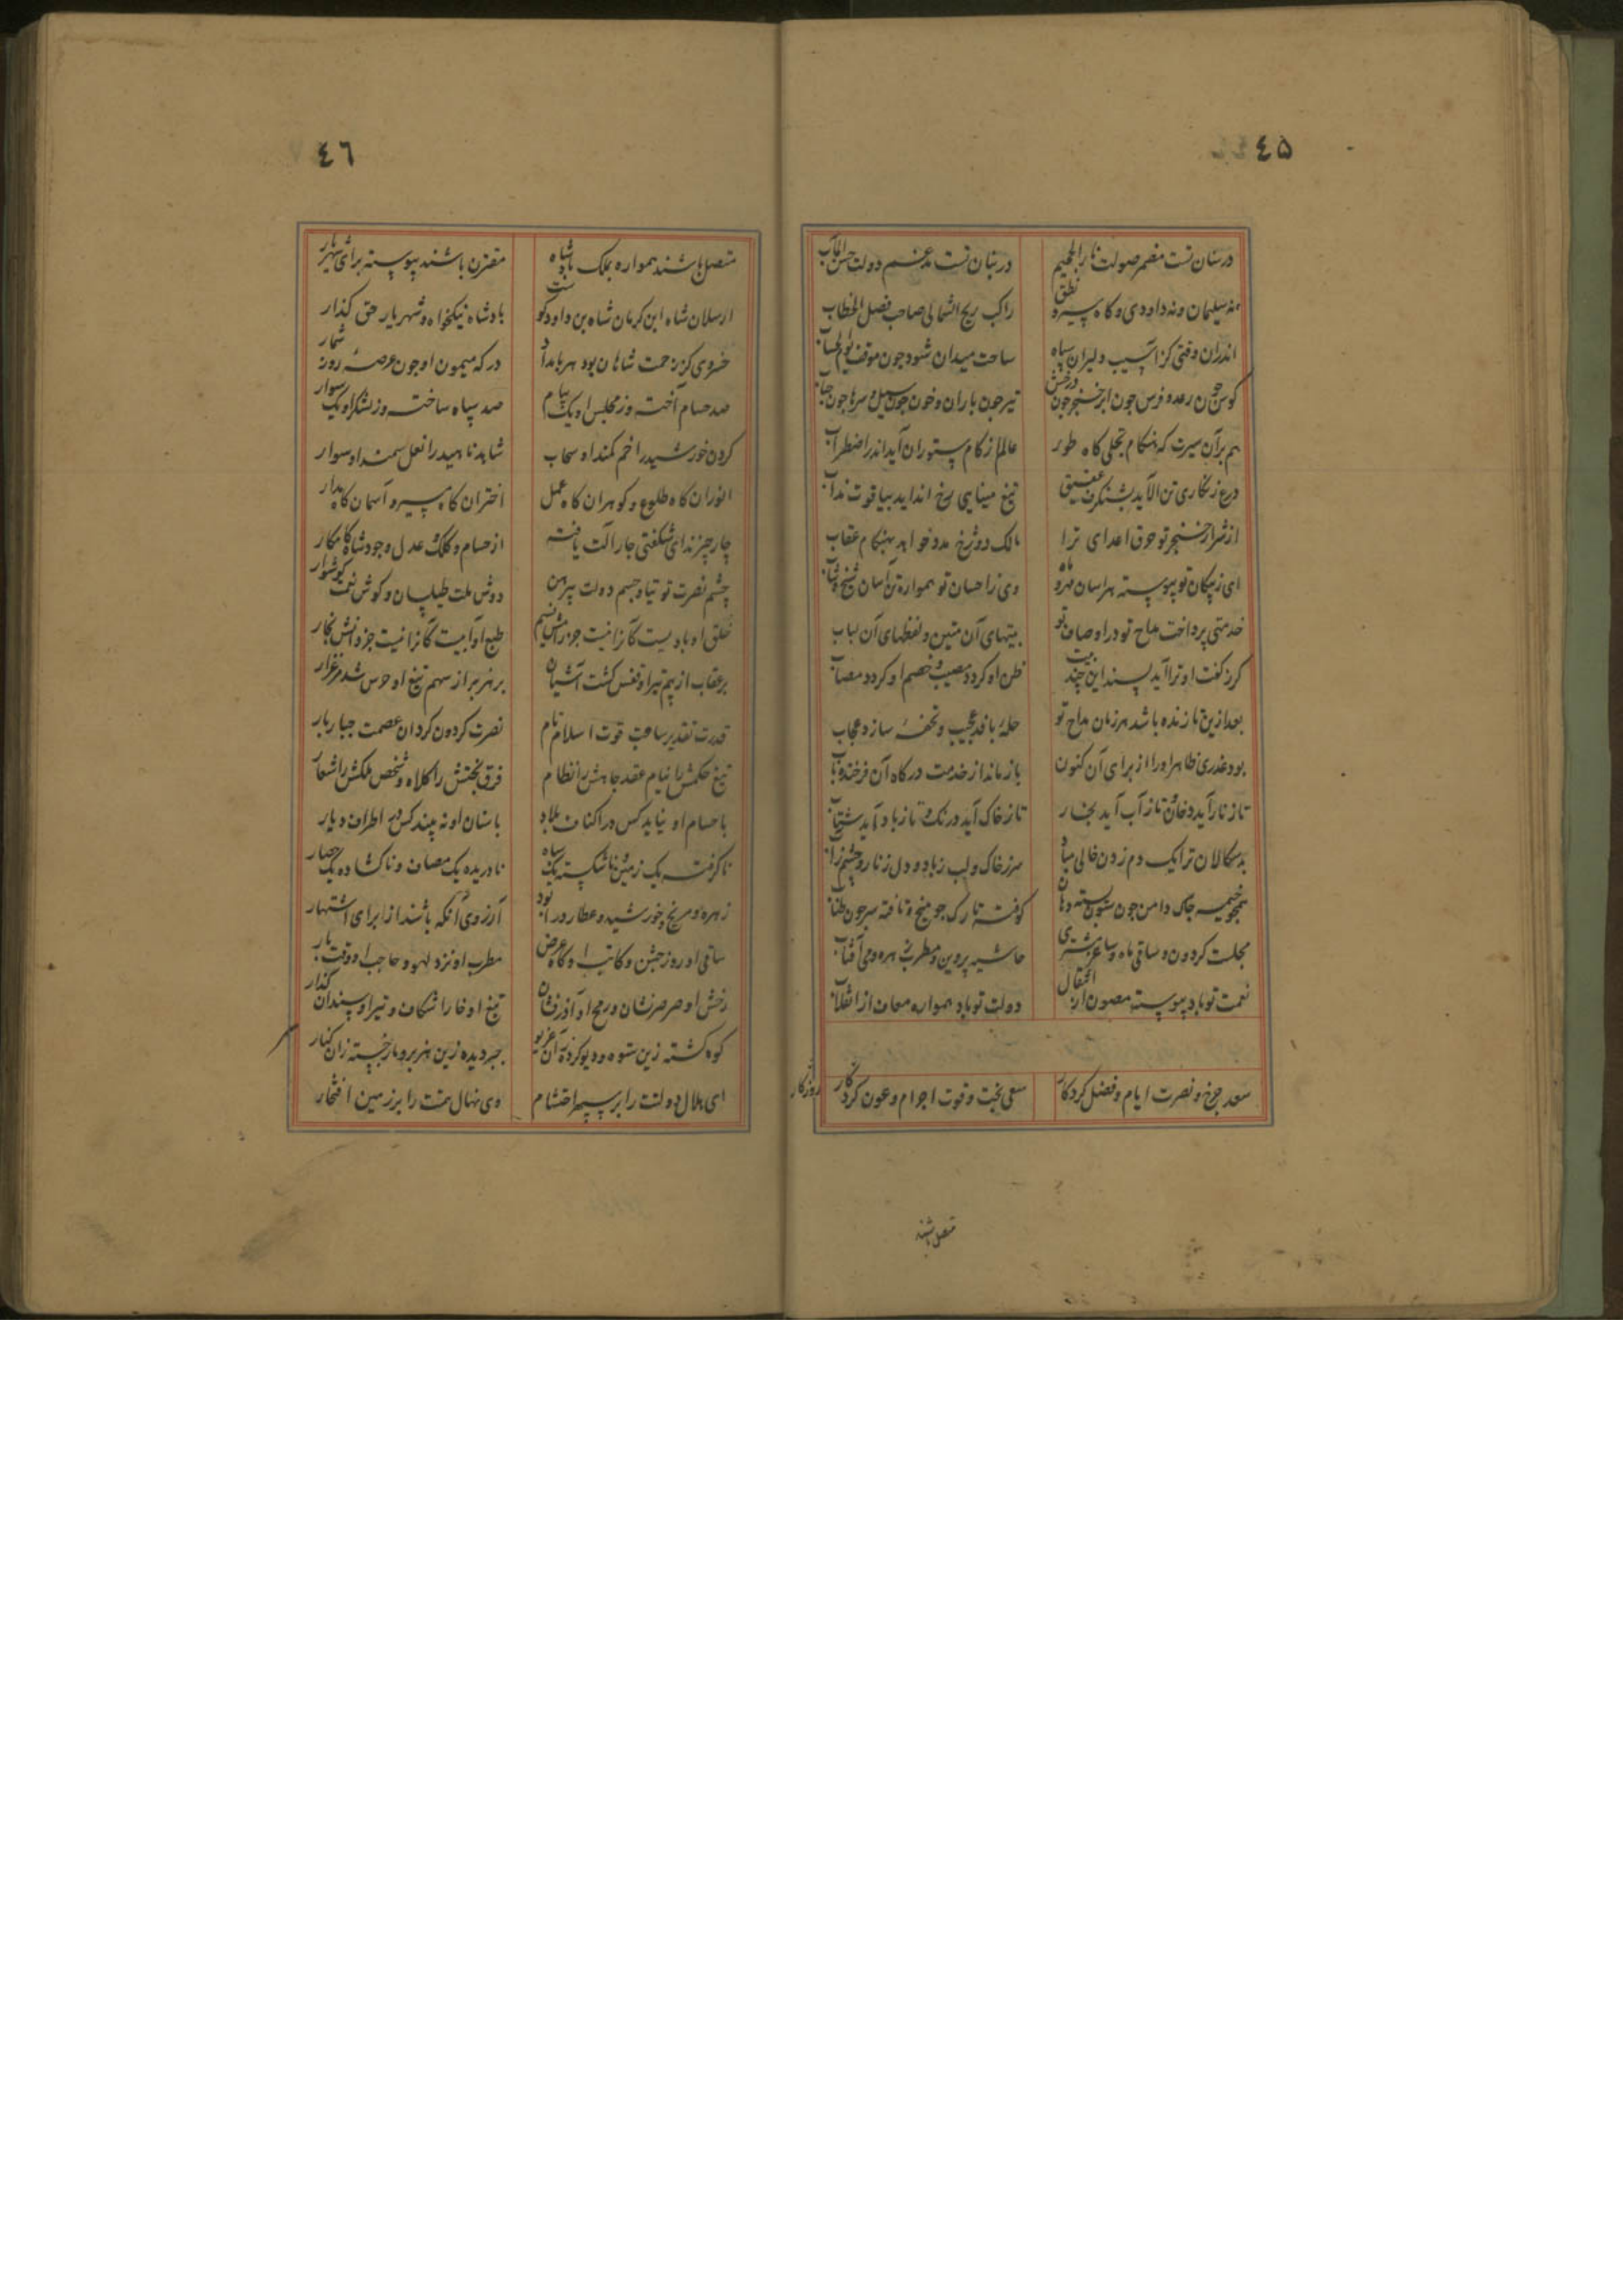 ٤۵
درسنان تست مضمر صولت نار الجحیم
در بنان تست مدغم دولت حسن المآب
نه سلیمان و نه داودی و کاه سیر و نطق
راکب ریح الشمالی صاحب فصل الخطاب
اندران وقتی کز آسیب دلیران سپاه
ساحت میدان شود چون موقف یوم الحساب
کوس چون رعد و فرس چون ابر خنجر چون درخش
تیر چون باران و خون چون سیل و سرها چون حباب
هم برآن سیرت که هنکام تجلی کاه طور
عالم از کام ستوران آید اندر اضطراب
درع زنکاری تن الاید بشنکرف عقیق
تیغ مینایی رخ انداید بیاقوت مذاب
از شرار خنجر تو حرق اعدای ترا
مالک دوزخ مدد خواهد بهنکام عقاب
ای ز پیکان تو پیوسته هراسان مهر و ماه
وی ز احسان تو همواره تن آسان شیخ و شاب
خدمتی پرداخت مداح تو در اوصاف تو
بیتهای آن متین و لفظهای آن لباب
کر ز کفت او ترا آید پسند این چند بیت
ظن او کردد مصیب و خصم او کردد مصاب
بعد ازین تا زنده باشد هر زمان مداح تو
حله بافد عجیب و تحفه سازد عجاب
بود عذری ظاهر او را از برای آن کنون
باز ماند از خدمت درکاه آن فرخنده باب
تا ز نار آید دخان و تا ز آب آید بخار
تا ز خاک آید درنک و تا ز باد آید شتاب
بدسکالان ترا یک دم زدن خالی مباد
سر ز خاک و لب ز باد و دل ز نار و چشم ز آب
همچو خیمه چاک دامن چون ستون بسته دهان
کوفته تارک چو میخ و تافته سر چون طناب
مجلست کردون و ساقی ماه و ساغر مشتری
حاشیه پروین و مطرب زهره و می آفتاب
نعمت تو باد پیوسته مصون از انتقال
دولت تو باد همواره معاف از انقلاب
سعد چرخ و نصرت ایام و فضل کردکار
سعی بخت و قوت اجرام و عون روزکار
کردکار
متصل باشند
٤٦
متصل باشند همواره بملک پادشاه
مقترن باشند پیوسته برای شهریار
ارسلان شاه ابن کرمان شاه بن داود کوست
پادشاه نیکخواه و شهریار حق کذار
خسروی کز زحمت شاهان بود هر بامداد
درکه میمون او چون عرصه روز شمار
صد حسام آخته وز مجلس او یک پیام
صد سپاه ساخته وز لشکر او یک سوار
کردن خورشید را خم کمند او سحاب
شاید ناهید را نعل سمند او سوار
انوران کاه طلوع و کوهران کاه عمل
اختران کاه سیر و آسمان کاه مدار
چار چیزند ای شکفتی چار آلت یافته
از حسام و کلک و عدل و جود شاه کامکار
چشم نصرت توتیا و جسم دولت پیرهن
دوش ملت طیلسان و کوش نعمت کوشوار
خلق او بادیست کانرا نیست جز رامش نسیم
طبع او آبیست کانرا نیست جز دانش بخار
بر عقاب از بیم تیر او قفس کشت آشیان
بر هزبر از سهم تیغ او حرس شد مرغزار
قدرت تقدیر ساعت قوت اسلام نام
نصرت کردون کردان عصمت جبار بار
تیغ حکمش را نیام عقد جاهش را نظام
فرق بختش را کلاه و شخص ملکش را شعار
با حسام او نیاید کس در اکناف بلاد
با سنان او نه بیند کس در اطراف دیار
ناکرفته یک زمین و ناشکسته یک سپاه
نادریده یک مصاف و ناکشاده یک حصار
زهره و مریخ و خورشید و عطارد را بود
آرزوی آنکه باشند از برای اشتهار
ساقی او روز جشن و کاتب او کاه عرض
مطرب او نزد لهو و حاجب او وقت بار
رخش او صرصر نشان و رمح او آذر فشان
تیغ او خارا شکاف و تیر او سندان کذار
کوه کشته زین ستوه و دیو کرده زان غریو
جبر دیده زین هنر برد بار جسته زان کنار
ای هلال دولتت را بر سپهر احتشام
وی نهال همتت را بر زمین افتخار